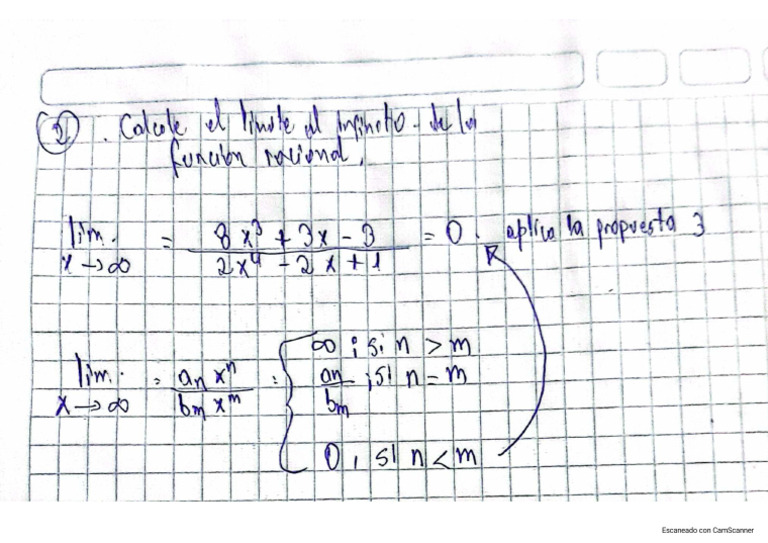 2. Calcule el limite al infinito de la
función racional.
lim. x→∞ = 8x³ + 3x - 3 / 2x⁴ - 2x + 1 = 0. aplica la propuesta 3
lim. x→∞ = aₙxⁿ / bₘxᵐ = { ∞ ; si n > m
aₙ / bₘ ; si n = m
0 , si n < m
Escaneado con CamScanner